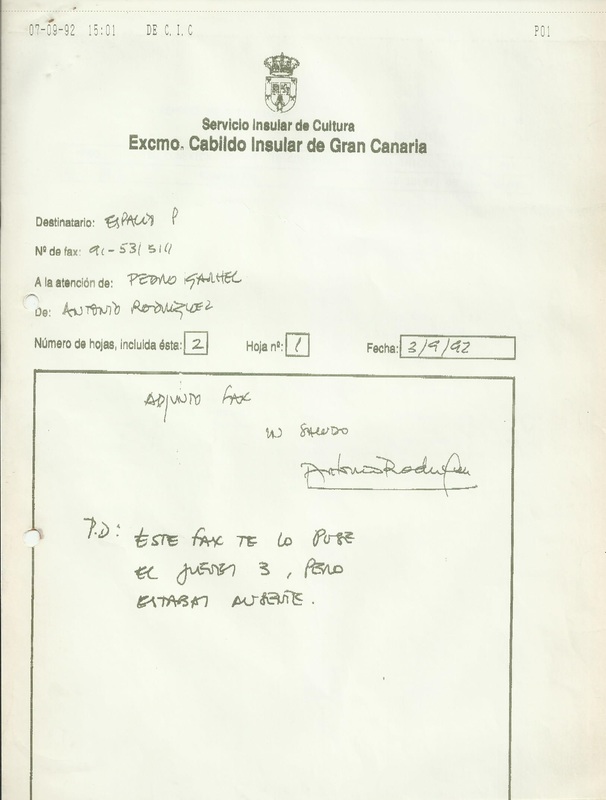 07-09-92 15:01 DE C.I.C P01
Servicio Insular de Cultura
Excmo. Cabildo Insular de Gran Canaria
Destinatario: ESPACIO P
Nº de fax: 91-531511
A la atención de: PEDRO GARHEL
De: ANTONIO RODRÍGUEZ
Número de hojas, incluida ésta: 2 Hoja nº: 1 Fecha: 3/9/92
ADJUNTO FAX
UN SALUDO
Antonio Rodríguez
P.D: ESTE FAX TE LO PUSE
EL JUEVES 3, PERO
ESTABAS AUSENTE.